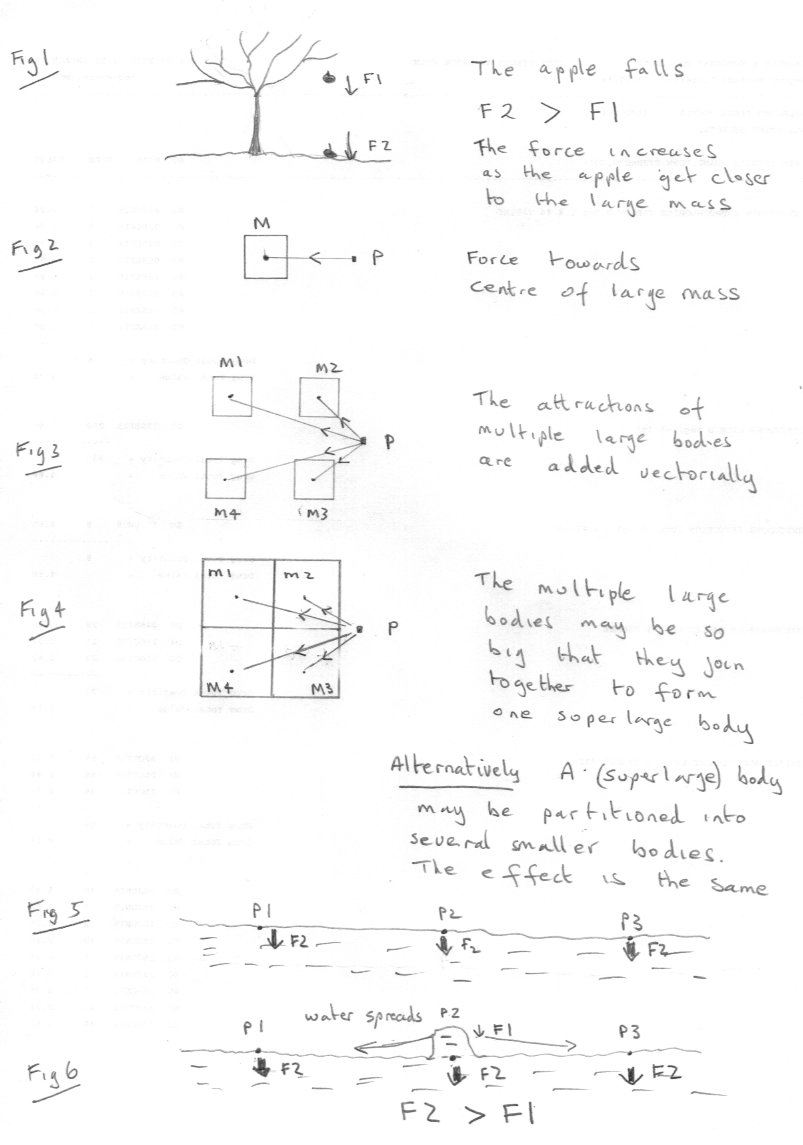 Fig 1
F1
F2
The apple falls
F2 > F1
The force increases
as the apple get closer
to the large mass
Fig 2
M
P
Force towards
centre of large mass
Fig 3
M1
M2
P
M4
M3
The attractions of
multiple large bodies
are added vectorially
Fig 4
m1
m2
P
M4
M3
The multiple large
bodies may be so
big that they join
together to form
one superlarge body
Alternatively A (superlarge) body
may be partitioned into
several smaller bodies.
The effect is the same
Fig 5
P1
P2
P3
F2
F2
F2
Fig 6
water spreads
P1
P2
F1
P3
F2
F2
F2
F2 > F1